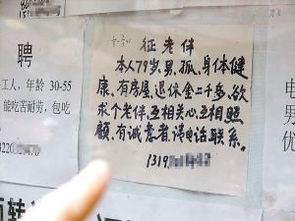 聘
工人，年龄 30-55
能吃苦耐劳，包吃
3220
征老伴
本人79岁，男，孤，身体健
康、有房屋，退休金二千多，欲
求个老伴，互相关心，互相照
顾，有诚意者，请电话联系。
1319
电
男
优